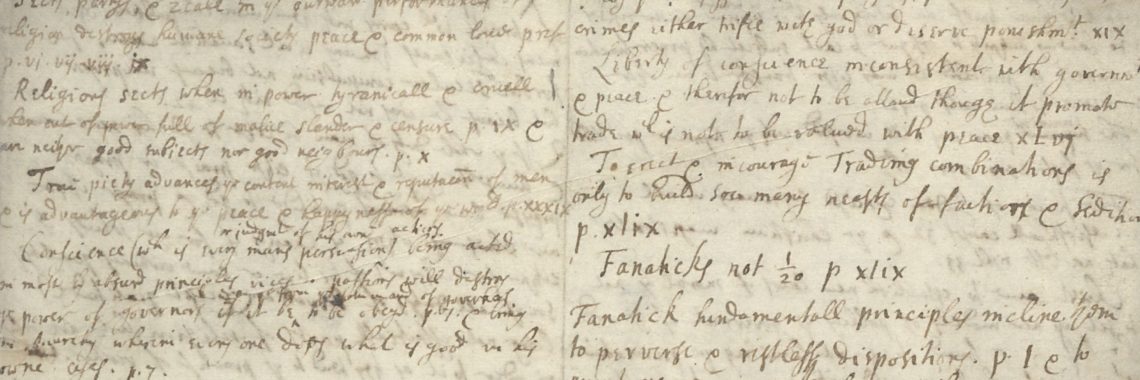 Sects party & zeall in ye outward performances of
religion destroys humane society peace & common love pref
p. vi. vij. viij. ix
Religious sects when in power tyranicall & cruell
when out of power full of malice slander & censure p. ix &
are neither good subjects nor good neighbours. p. x
True piety advances ye content interest & reputation of men
& is advantageous to ye peace & happynesse of ye world p. xxxix
or judgmt of his own actions
Conscience (wh is every mans perswasions) being acted
in most by absurd principles vices passions will destroy
ye power of governors if it be to be obeyd. p. 6. & bring
in Anarchy wherein every one does what is good in his
owne eies. p. 7.
crimes either trifle with god or deserve ponishmt. xix
Liberty of conscience inconsistent with governmt
& peace & therfor not to be allowd though it promote
trade wh is not to be valued with peace xlvj
To erect & incourage Trading combinations is
only to build soe many neasts of faction & Sedition
p. xlix
Fanaticks not 1/20 p xlix
Fanatick fundamentall principles incline them
to perverse & restlesse dispositions. p. l & to